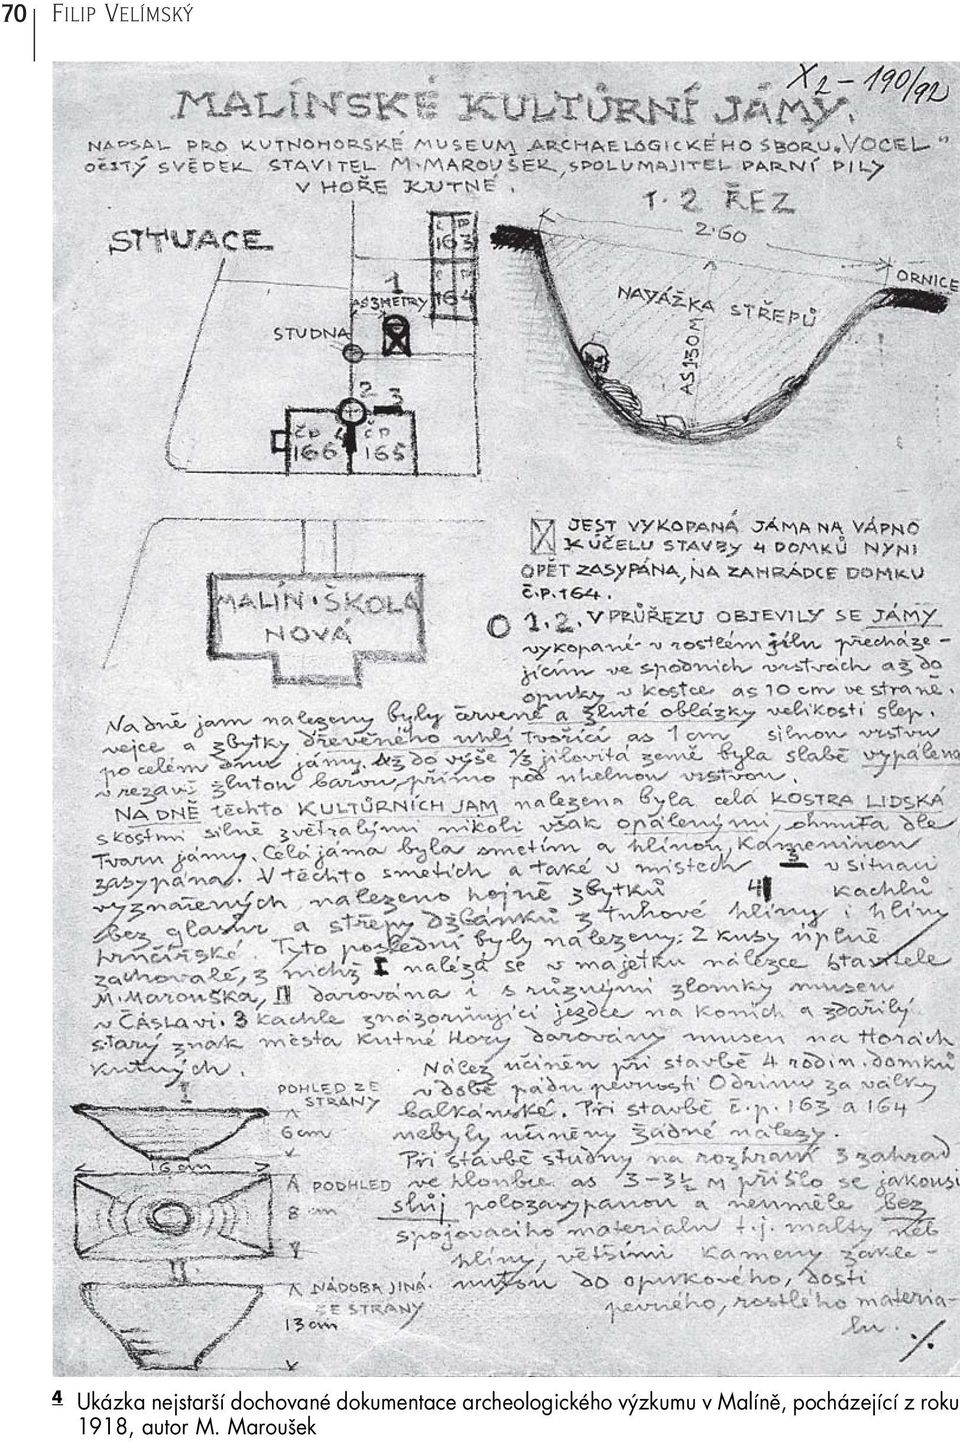 70 FILIP VELÍMSKÝ
X2 – 190/92
MALÍNSKÉ KULTŮRNÍ JÁMY.
NAPSAL PRO KUTNOHORSKÉ MUSEUM ARCHAELOGICKÉHO SBORU „VOCEL"
OČITÝ SVĚDEK STAVITEL M. MAROUŠEK, SPOLUMAJITEL PARNÍ PILY
V HOŘE KUTNÉ.
1. 2 ŘEZ
SITUACE
2·60
ORNICE
ČP 163
1
AS 3 METRY
ČP 164
STUDNA
NAVÁŽKA STŘEPŮ
AS 1·50 M
2 3
ČP 166
4
ČP 165
JEST VYKOPANÁ JÁMA NA VÁPNO
K ÚČELU STAVBY 4 DOMKŮ NYNI
OPĚT ZASYPÁNA, NA ZAHRÁDCE DOMKU
Č.P. 164.
MALÍN · ŠKOLA
NOVÁ
1. 2. V PRŮŘEZU OBJEVILY SE JÁMY
vykopané v rostlém jílu přecháze-
jícím ve spodních vrstvách až do
opuky v kostce as 10 cm ve straně.
Na dně jam nalezeny byly červené a žluté oblázky velikosti slep.
vejce a zbytky dřevěného uhlí tvořící as 1 cm silnou vrstvu
po celém dnu jámy. Až do výše ⅓ jílovitá země byla slabě vypálena
v rezavě žlutou barvu, přímo pod uhelnou vrstvou.
NA DNĚ těchto KULTŮRNÍCH JAM nalezena byla celá KOSTRA LIDSKÁ
s kostmi silně zvětralými nikoli však opálenými, ohnutá dle
Tvaru jámy. Celá jáma byla smetím a hlínou, Kameninou
zasypána. V těchto smetích a také v místech 3 v situaci
vyznačených, nalezeno hojně zbytků 4 kachlů
bez glasur a střepy džbánků z tuhové hlíny i hlíny
hrnčířské. Tyto poslední byly nalezeny: 2 kusy úplně
zachovalé, z nichž I nalézá se v majetku nálezce stavitele
M. Marouška, II darována i s různými zlomky museu
v ČÁSLAVI. 3 kachle znázorňující jezdce na koních a zdařilý
starý znak města Kutné Hory darovány museu na Horách
Kutných.
Nález učiněn při stavbě 4 rodin. domků
v době pádu pevnosti Odrinu za války
balkánské. Při stavbě č.p. 163 a 164
nebyly učiněny žádné nálezy.
Při stavbě studny na rozhraní 3 zahrad
ve hloubce as 3–3½ M přišlo se jakousi
sluj polozasypanou a neuměle bez
spojovacího materialu t.j. malty neb
hlíny, většími kameny zakle-
nutou do opukového, dosti
pevného, rostlého materia-
lu. ./.
I
POHLED ZE
STRANY
6 cm
16 cm
PODHLED
8 cm
II
NÁDOBA JINÁ
ZE STRANY
13 cm
4 Ukázka nejstarší dochované dokumentace archeologického výzkumu v Malíně, pocházející z roku
1918, autor M. Maroušek